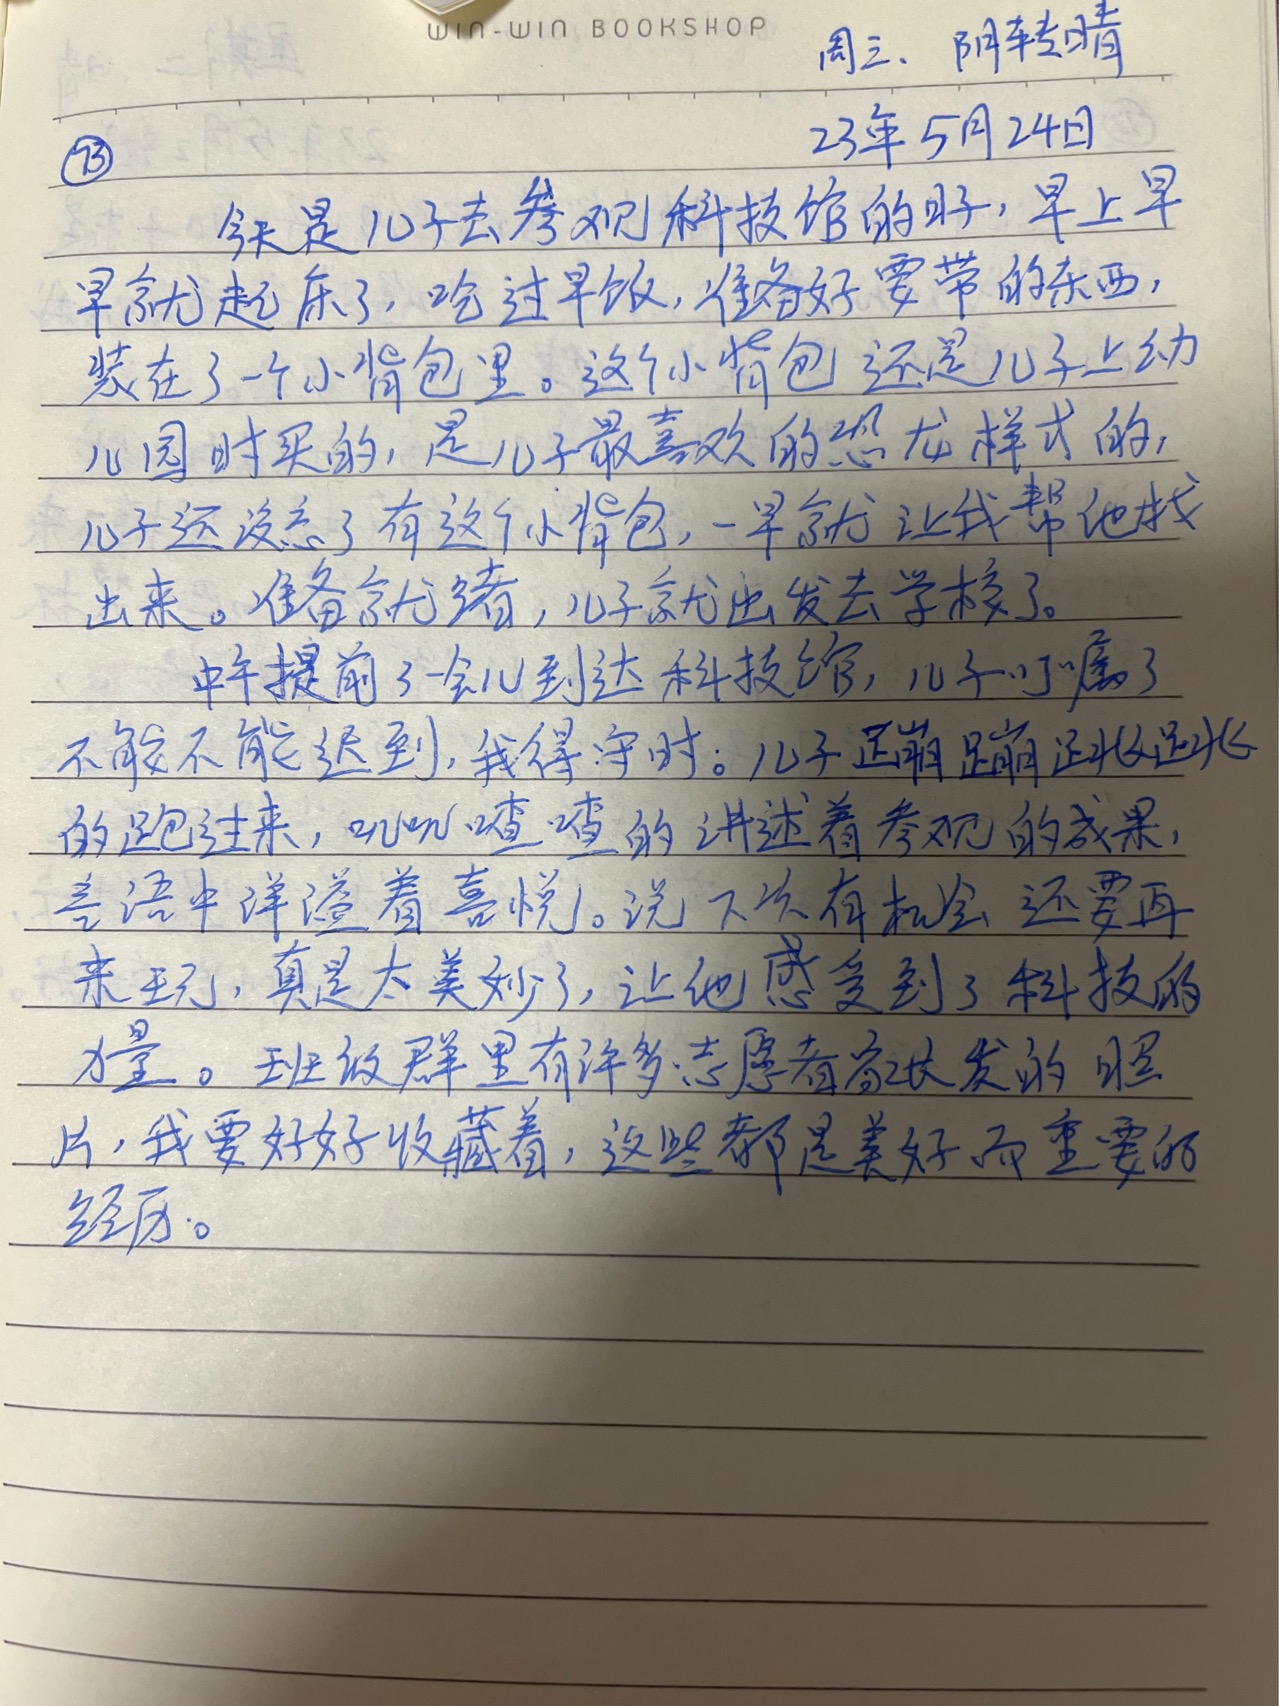 WIN-WIN BOOKSHOP
周三、阴转晴
23年5月24日
73
今天是儿子去参观科技馆的日子，早上早
早就起床了，吃过早饭，准备好要带的东西，
装在了一个小背包里。这个小背包还是儿子上幼
儿园时买的，是儿子最喜欢的恐龙样式的，
儿子还没忘了有这个小背包，一早就让我帮他找
出来。准备就绪，儿子就出发去学校了。
中午提前了一会儿到达科技馆，儿子叮嘱了
不能不能迟到，我得守时。儿子蹦蹦跳跳
的跑过来，叽叽喳喳的讲述着参观的成果，
言语中洋溢着喜悦。说下次有机会还要再
来玩，真是太美妙了，让他感受到了科技的
力量。班级群里有许多志愿者家长发的照
片，我要好好收藏着，这些都是美好而重要的
经历。